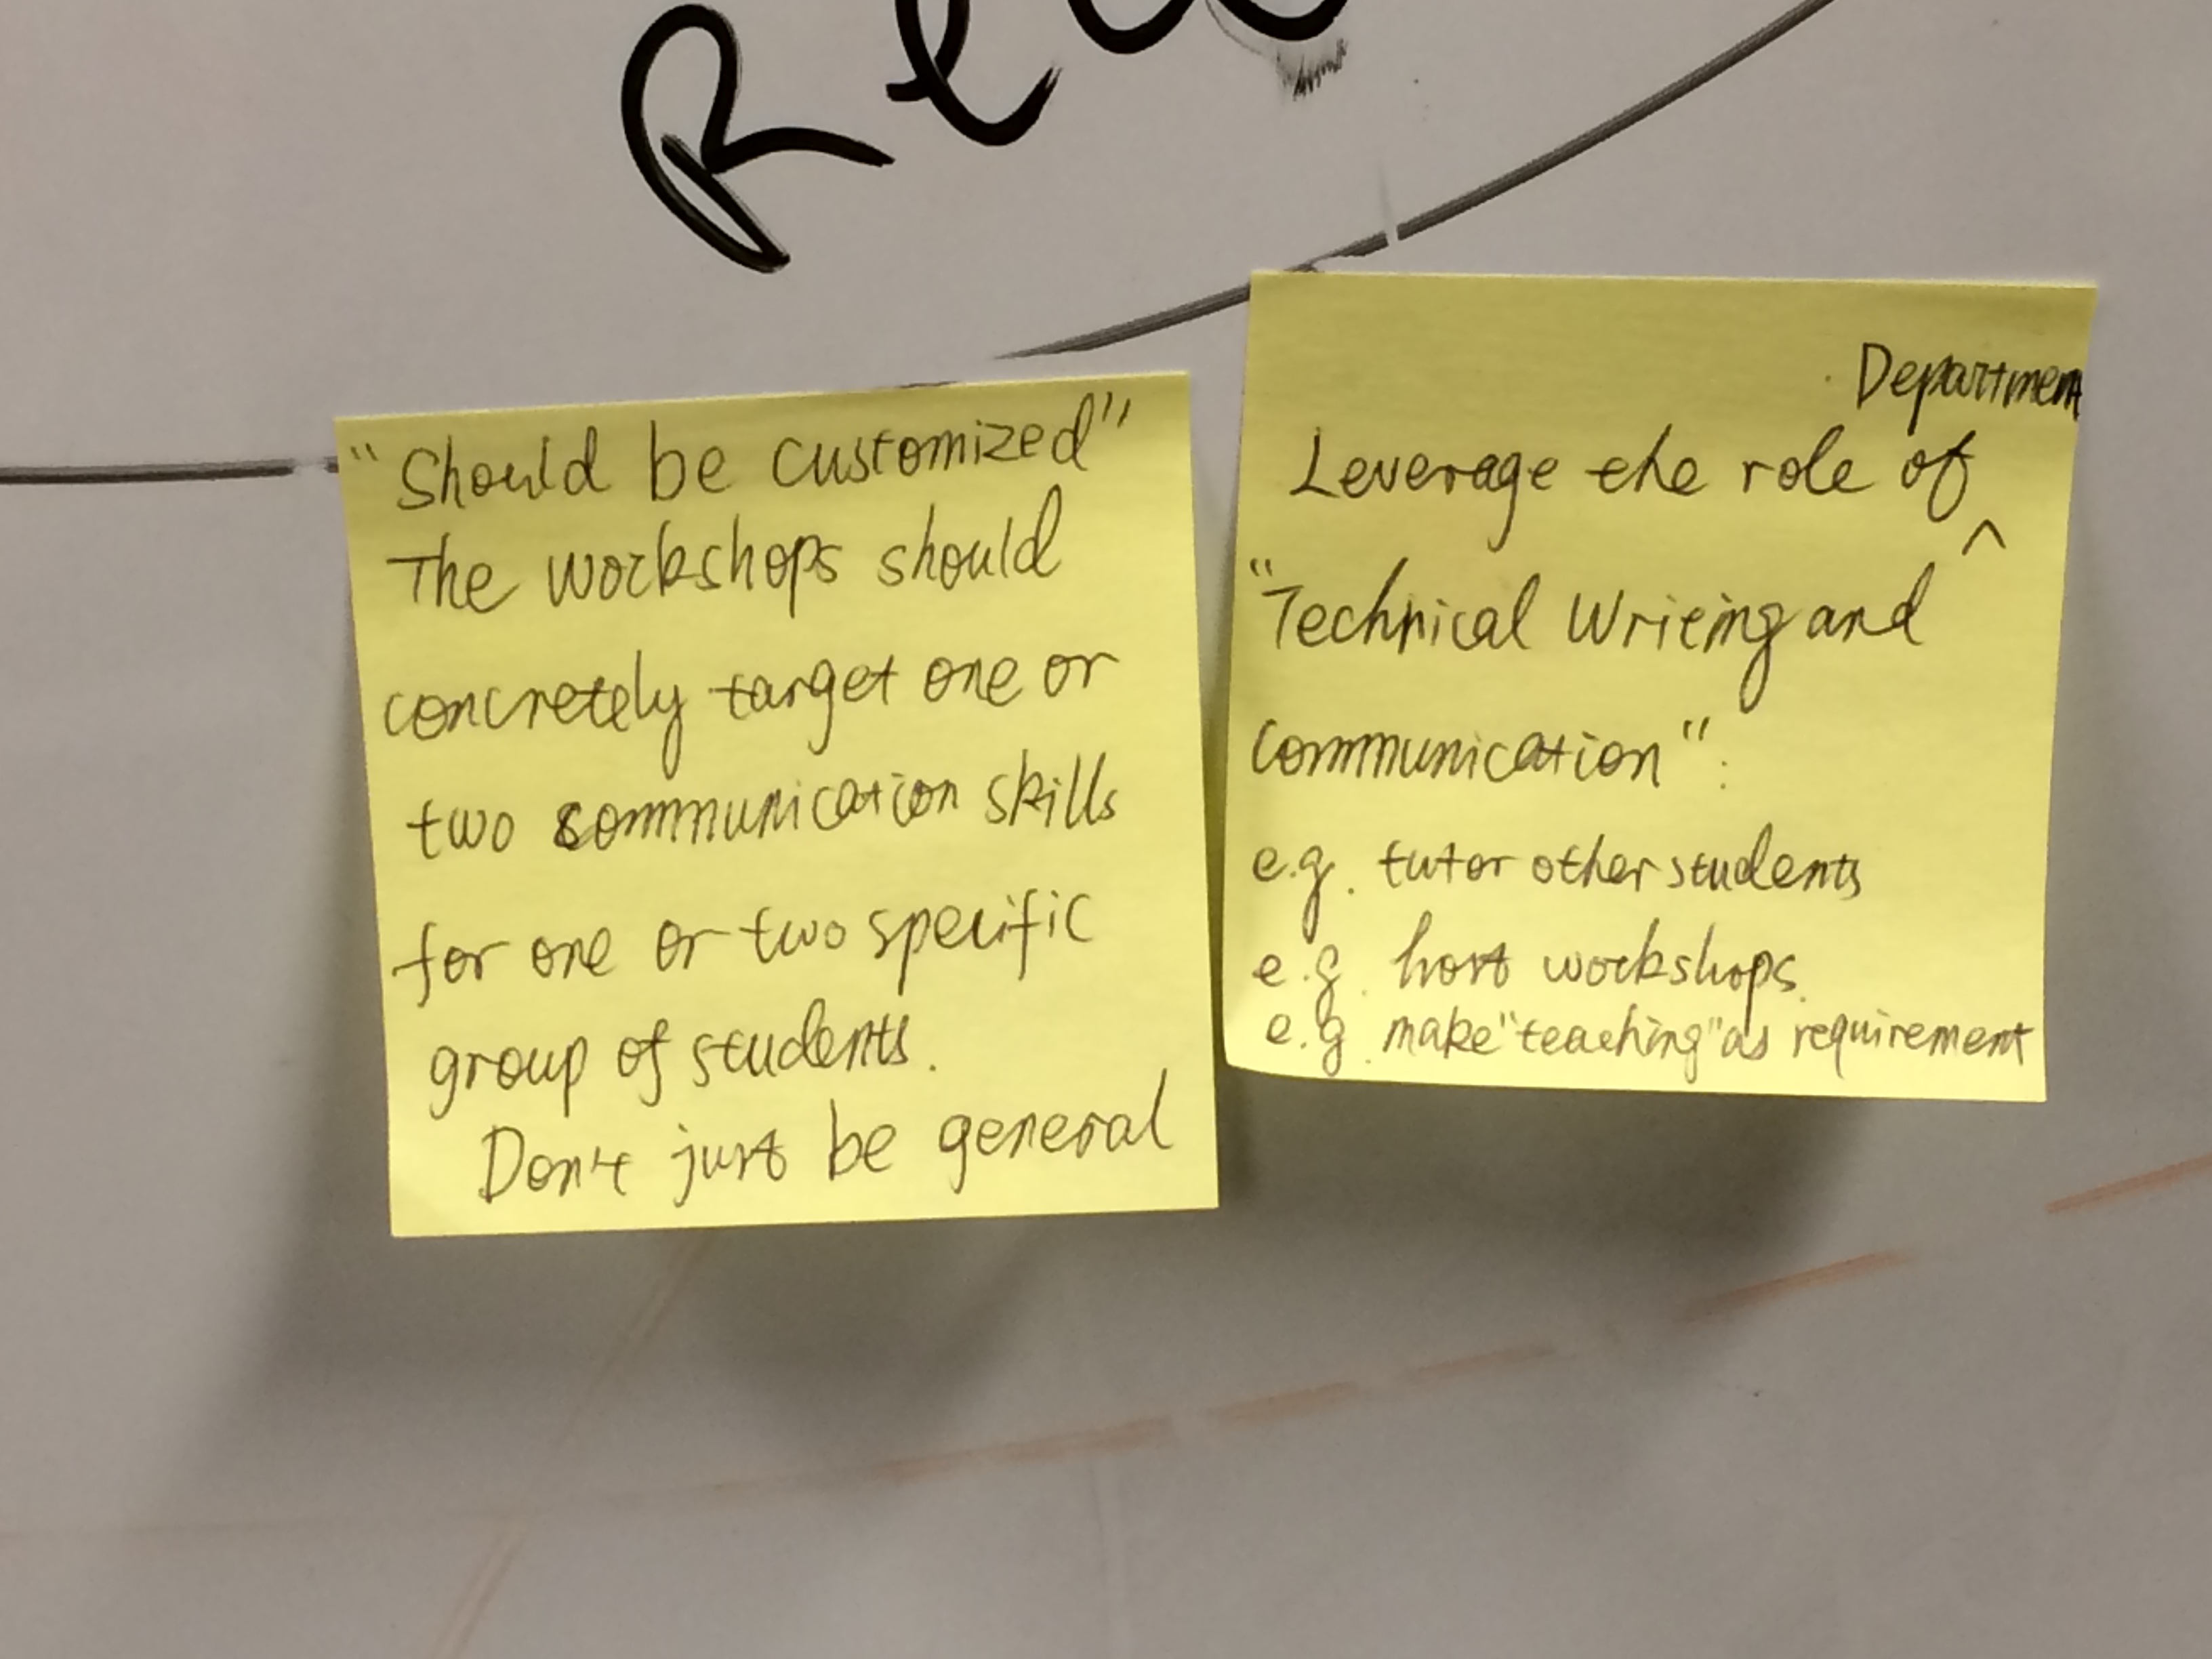 "Should be customized"
The workshops should
concretely target one or
two communication skills
for one or two specific
group of students.
Don't just be general
Department
Leverage the role of ^
"Technical Writing and
Communication":
e.g. tutor other students
e.g. host workshops.
e.g. make "teaching" as requirement